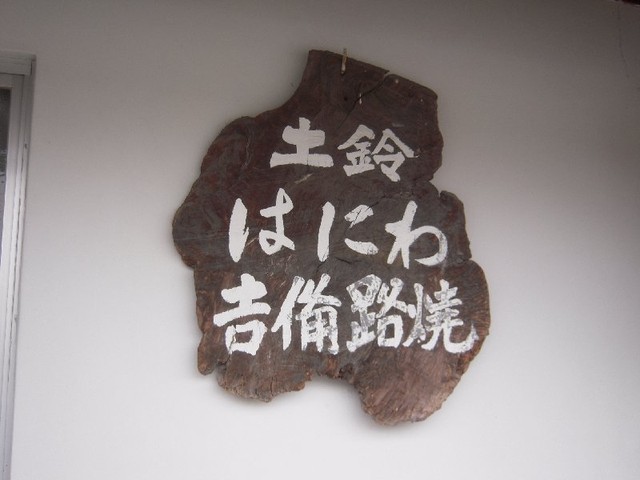 土鈴
はにわ
吉備路焼